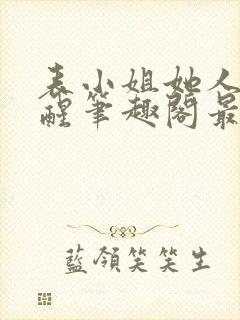 表小姐她人
醒笔趣阁最
蓝领笑笑生